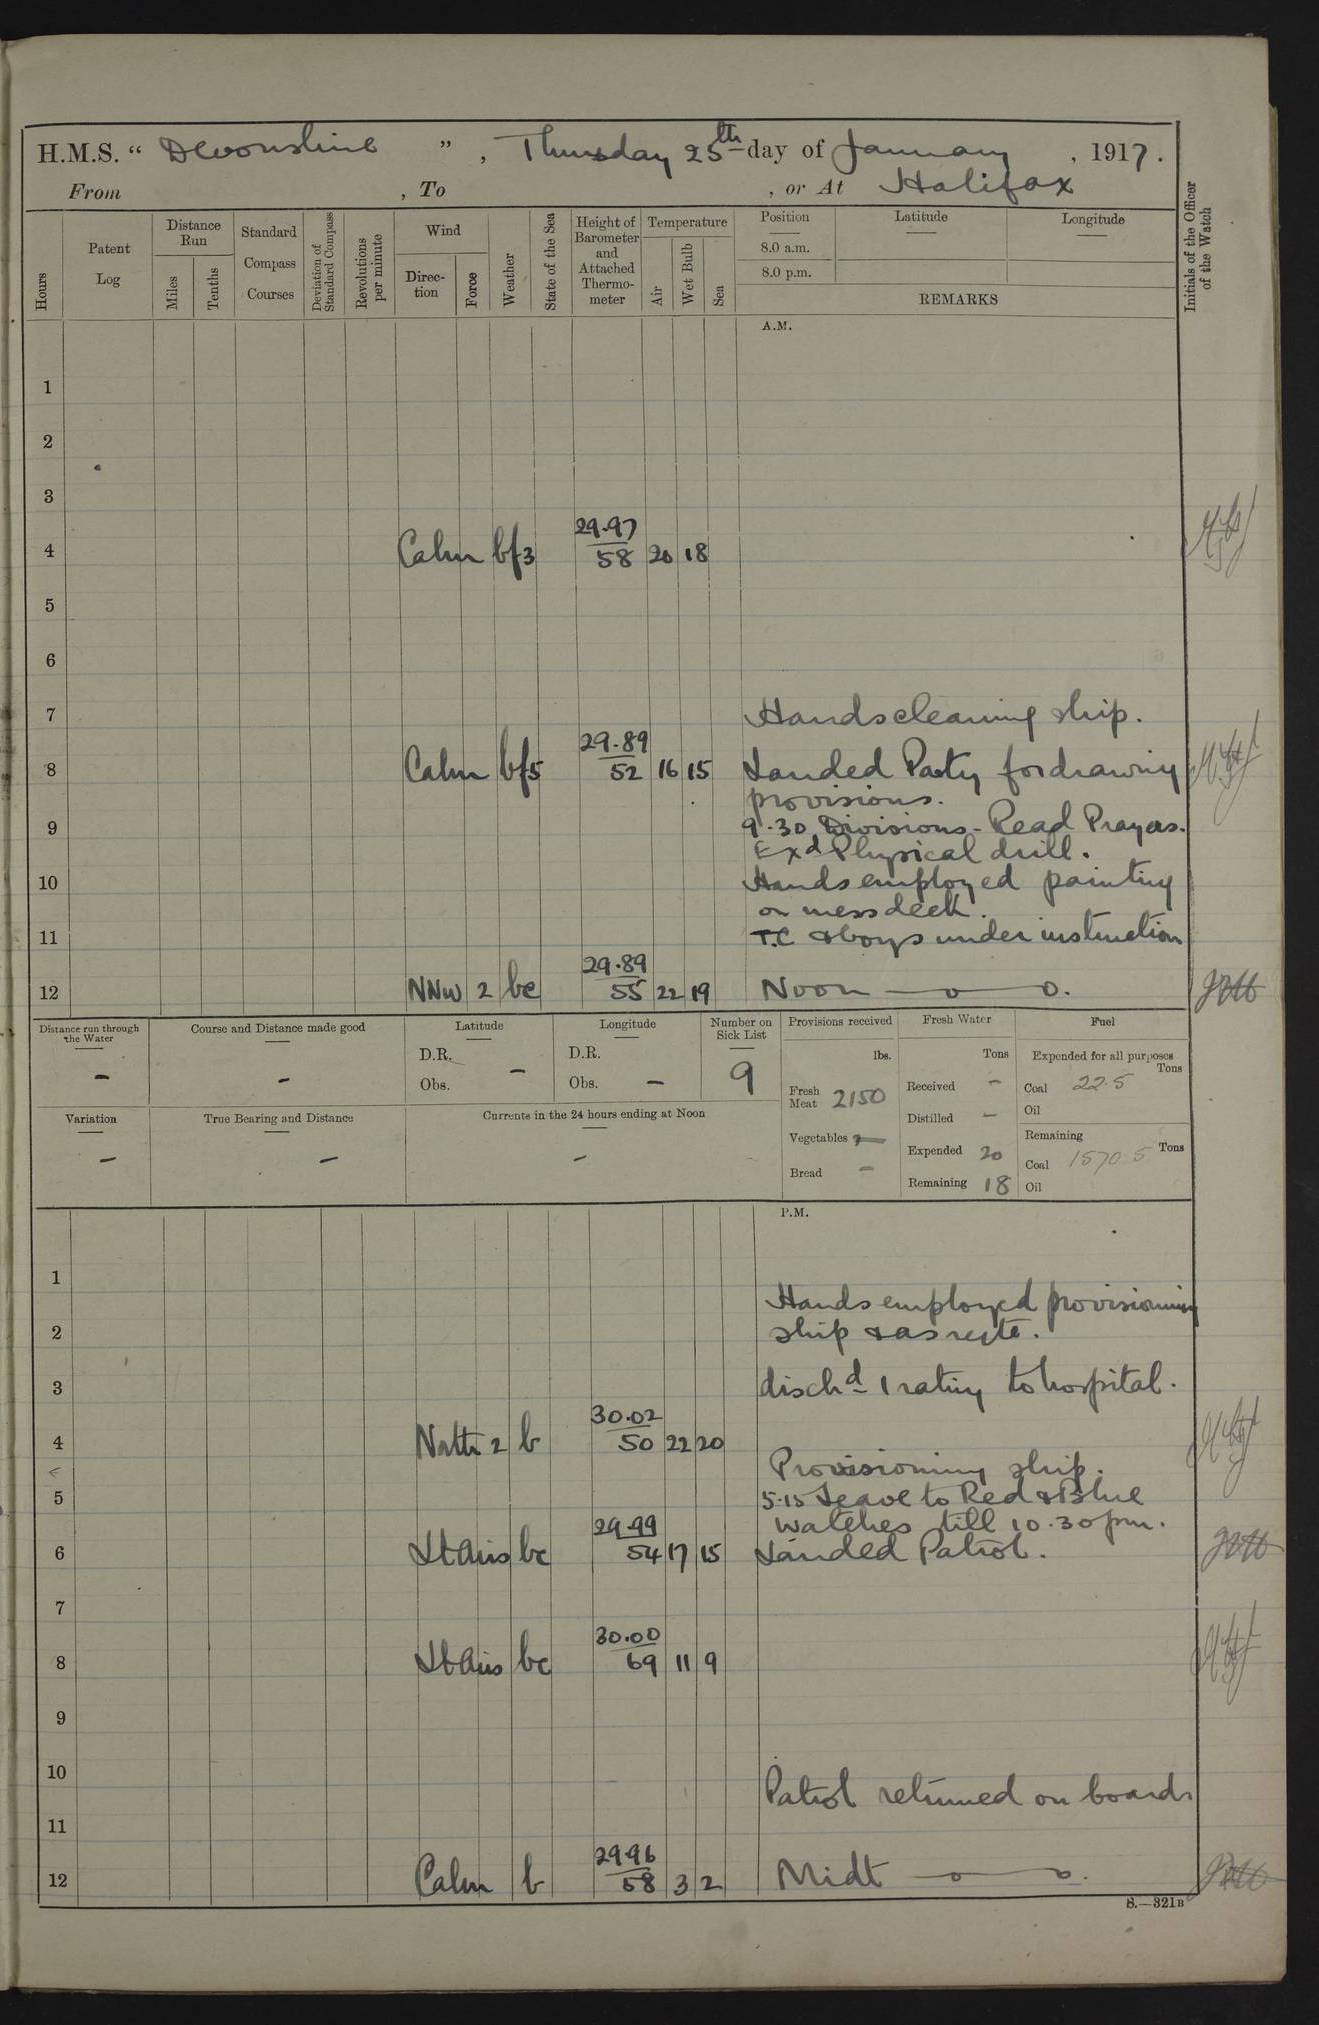 H.M.S. " Devonshire " , Thursday 25th day of January , 1917.
From , To , or At Halifax
Hours
Patent Log
Distance Run
Miles
Tenths
Standard Compass Courses
Deviation of Standard Compass
Revolutions per minute
Wind
Direction
Force
Weather
State of the Sea
Height of Barometer and Attached Thermometer
Temperature
Air
Wet Bulb
Sea
Position
8.0 a.m.
8.0 p.m.
Latitude
Longitude
REMARKS
Initials of the Officer of the Watch
A.M.
1
2
3
4 Calm bf3 29.97 58 20 18
5
6
7 Hands cleaning ship.
8 Calm bf5 29.89 52 16 15 Landed Party for drawing
provisions.
9 9.30 Divisions - Read Prayers.
Exd Physical drill.
10 Hands employed painting
on mess deck.
11 T.C & boys under instruction
12 NNW 2 bc 29.89 55 22 19 Noon — o — o.
Distance run through the Water
-
Course and Distance made good
-
Latitude
D.R.
Obs. -
Longitude
D.R.
Obs. -
Number on Sick List
9
Provisions received
lbs.
Fresh Meat 2150
Vegetables -
Bread -
Fresh Water
Tons
Received -
Distilled -
Expended 20
Remaining 18
Fuel
Expended for all purposes
Tons
Coal 22.5
Oil
Remaining
Coal 1570.5 Tons
Oil
Variation
-
True Bearing and Distance
-
Currents in the 24 hours ending at Noon
-
P.M.
1
Hands employed provisioning
2 ship & as reqte.
3 dischd 1 rating to hospital.
4 North 2 b 30.02 50 22 20
Provisioning ship.
5 5.15 Leave to Red & Blue
watches till 10.30 pm.
6 Lt Airs bc 29.99 54 17 15 Landed Patrol.
7
8 Lt Airs bc 30.00 69 11 9
9
10
Patrol returned on board
11
12 Calm b 29.96 58 3 2 Midt — o — o.
S.—321B